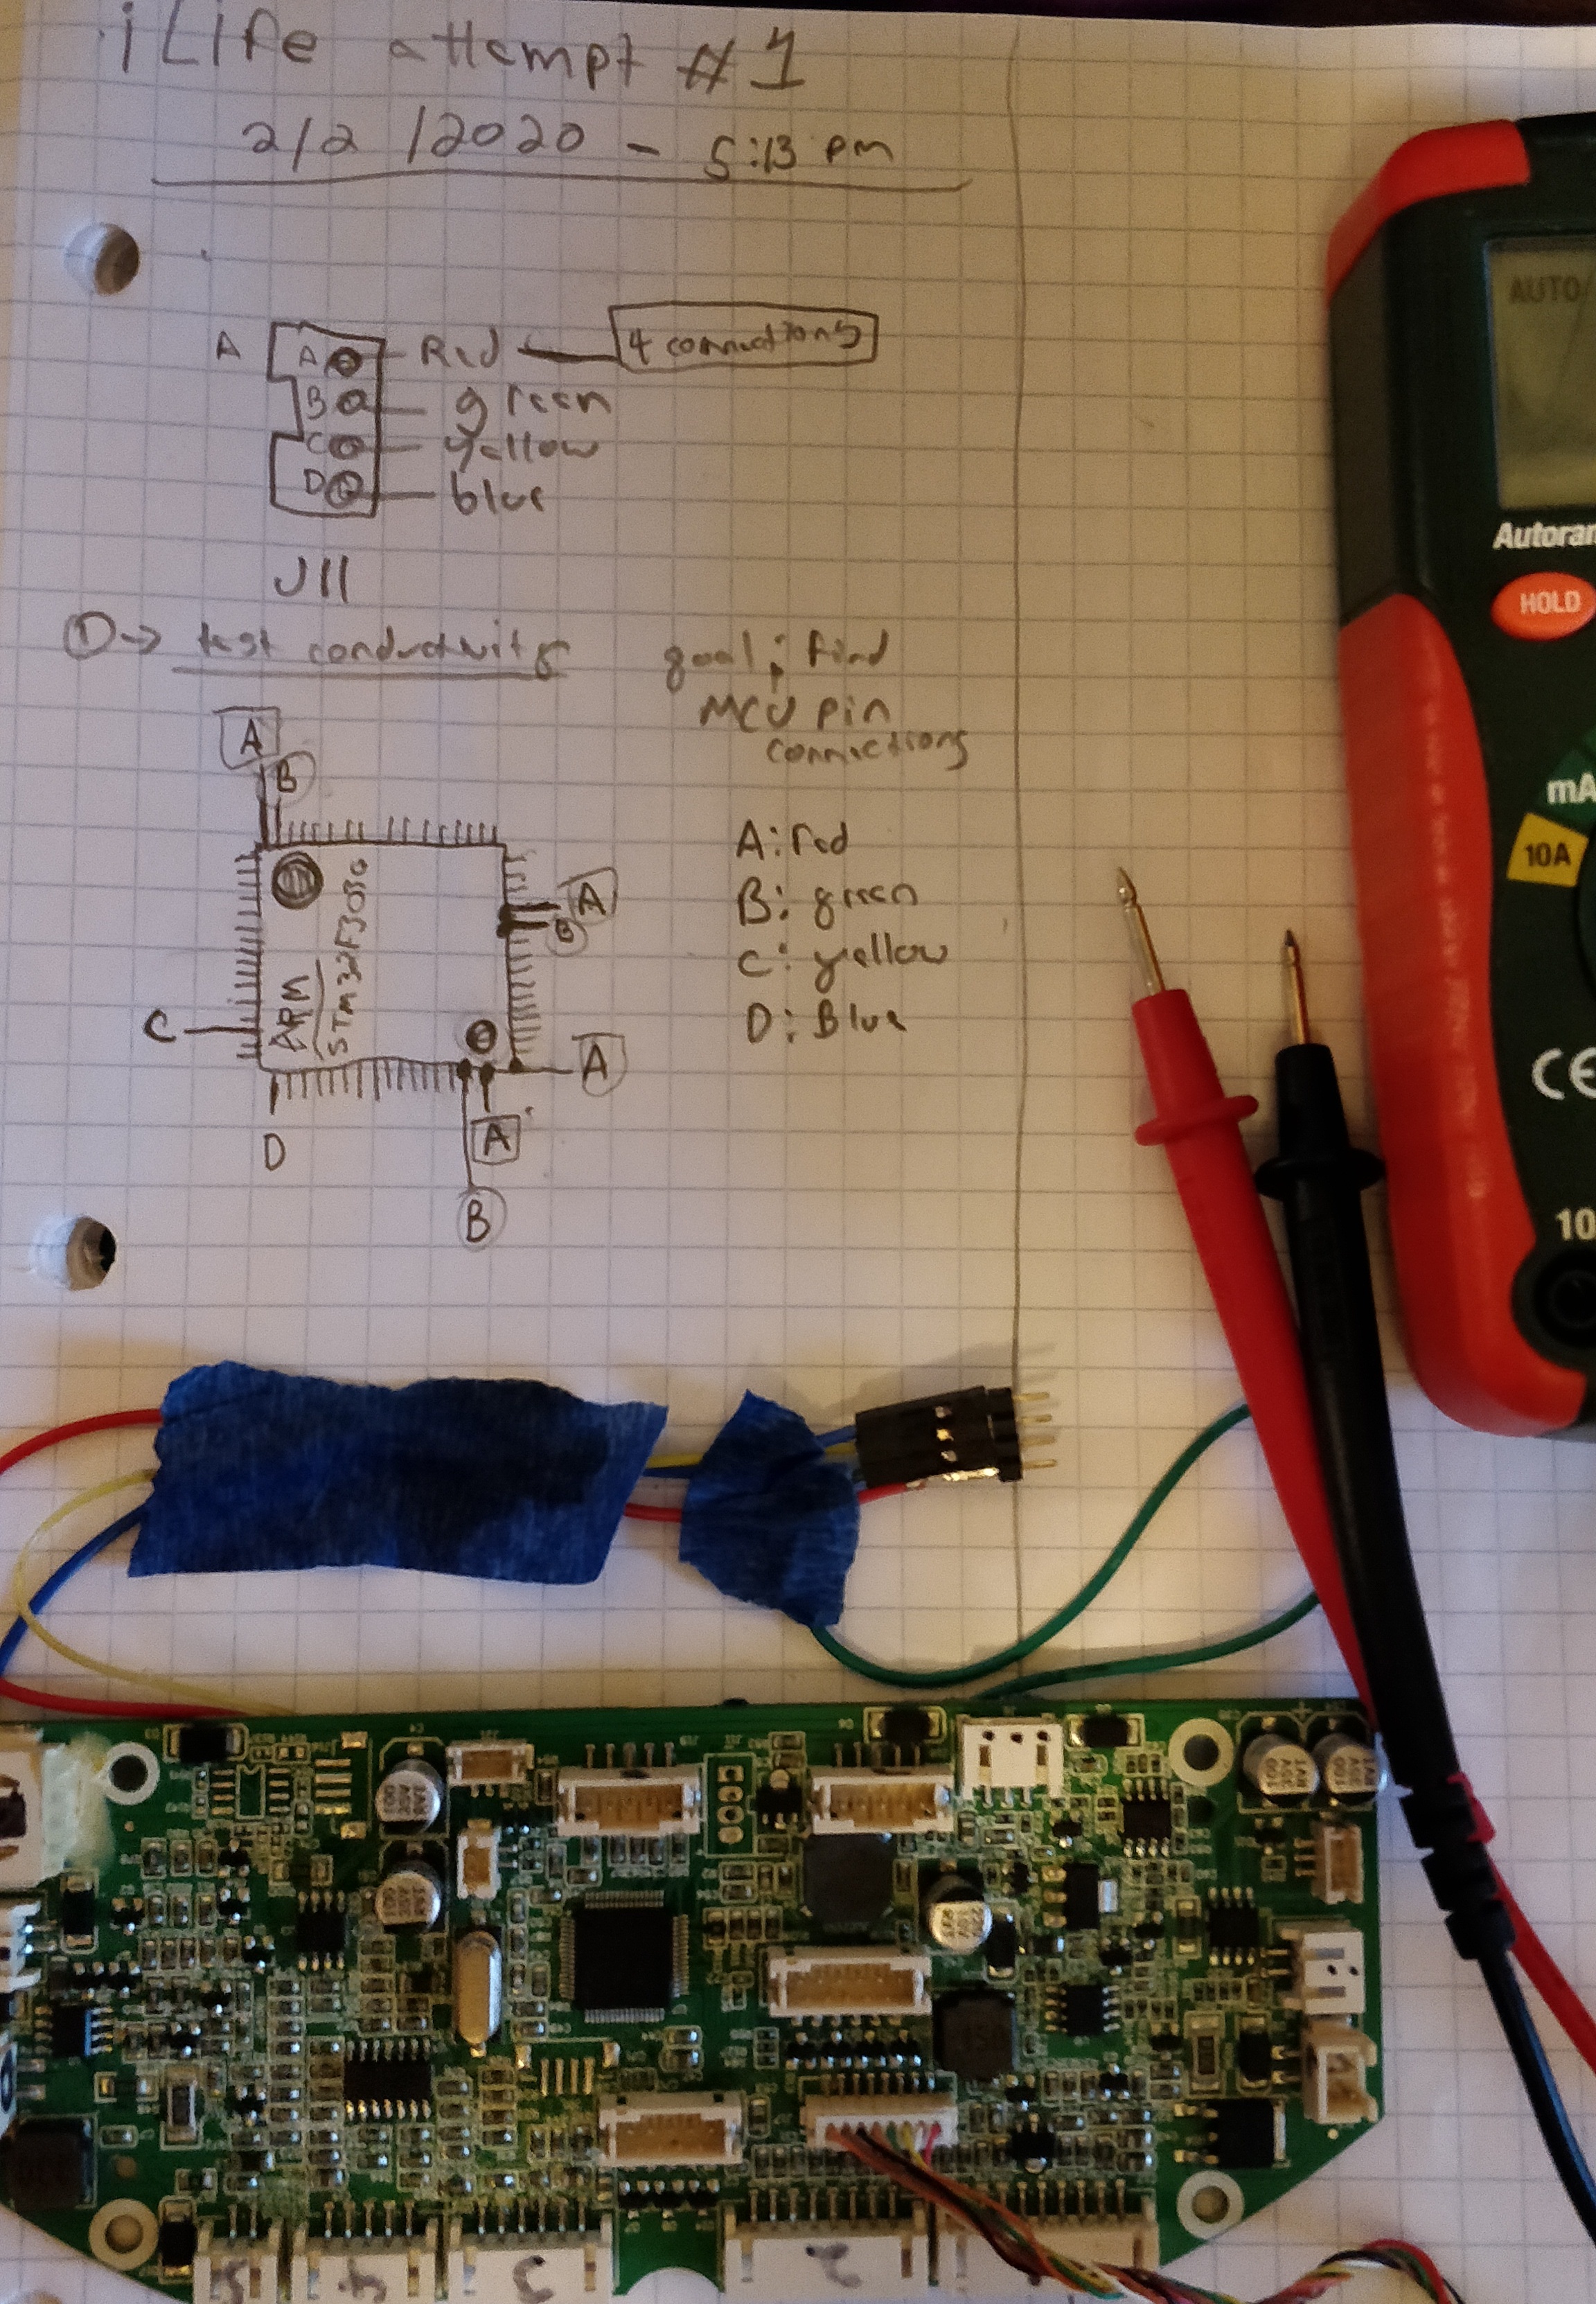 iLife attempt #1
2/2/2020 - 5:13 pm
A
A Red 4 connections
B green
C yellow
D blue
J11
① → test conductivity
goal: find
MCU pin
connections
A
B
A
B
ARM
C
A
D
A
B
A: red
B: green
C: yellow
D: Blue
AUTO
HOLD
mA
10A
CE
10
5
4
3
2